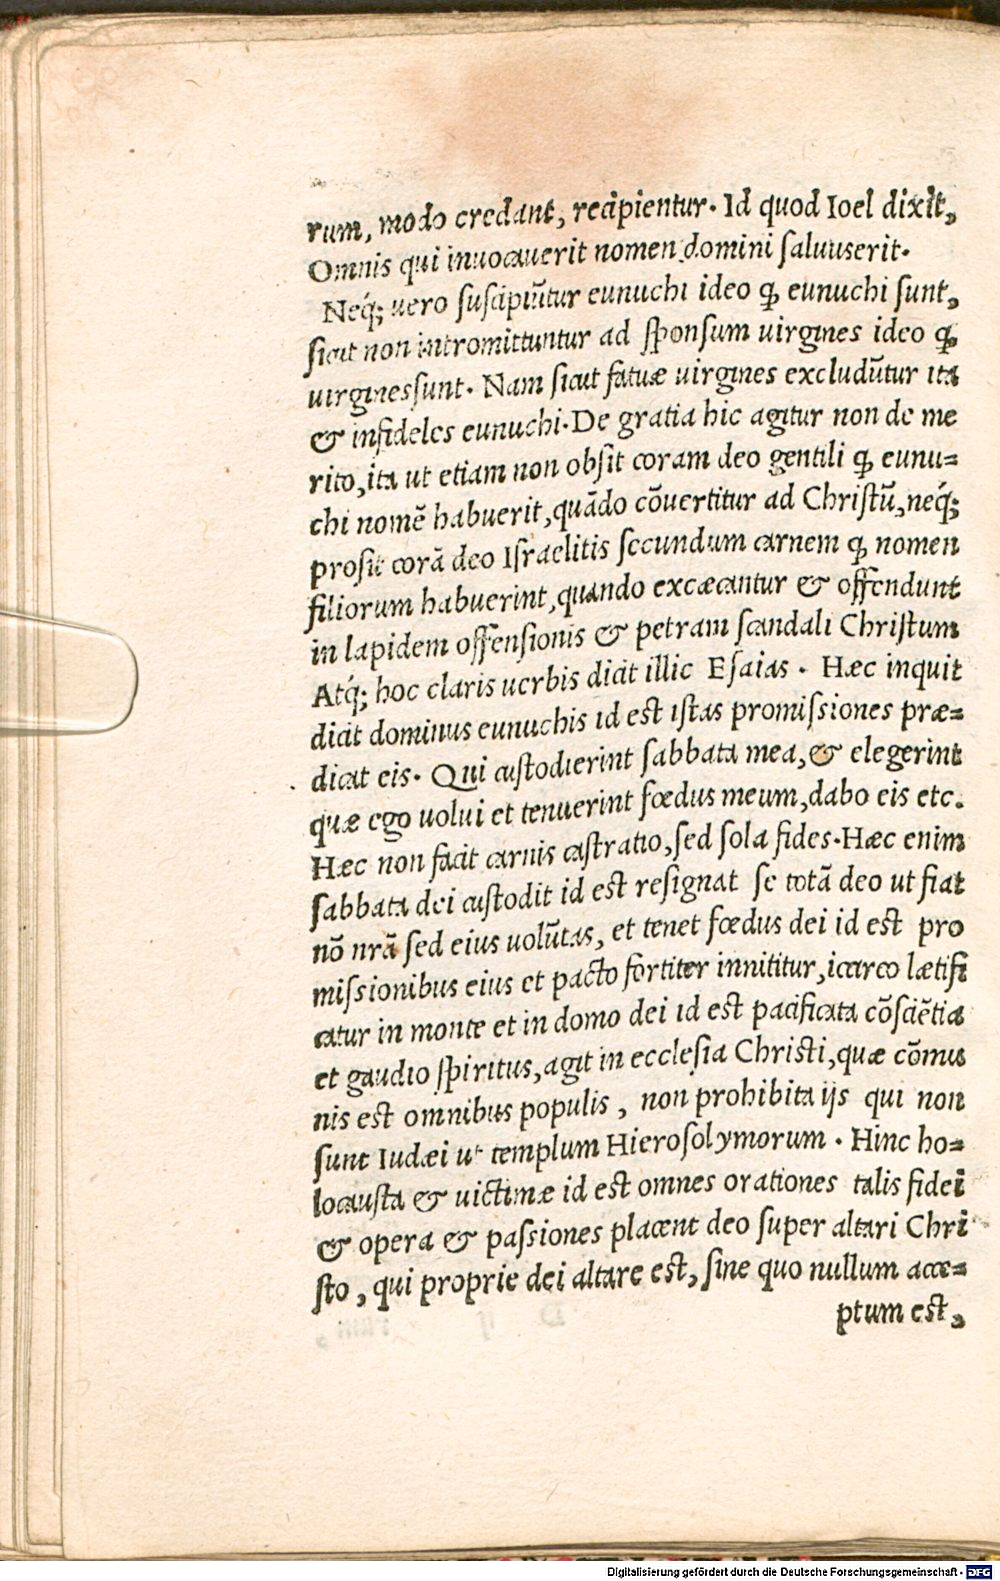 rum, modo credant, recipientur. Id quod Ioel dixit,
Omnis qui inuocauerit nomen domini saluuserit.
Neq́; uero suscipiũtur eunuchi ideo ꝙ eunuchi sunt,
sicut non intromittuntur ad sponsum uirgines ideo ꝙ
uirginessunt. Nam sicut fatuæ uirgines excludũtur ita
& infideles eunuchi. De gratia hic agitur non de me
rito, ita ut etiam non obsit coram deo gentili ꝙ eunu=
chi nomẽ habuerit, quãdo cõuertitur ad Christũ, neq́;
prosit corã deo Israelitis secundum carnem ꝙ nomen
filiorum habuerint, quando excæcantur & offendunt
in lapidem offensionis & petram scandali Christum
Atq́; hoc claris uerbis dicit illic Esaias. Hæc inquit
dicit dominus eunuchis id est istas promissiones præ=
dicat eis. Qui custodierint sabbata mea, & elegerint
quæ ego uolui et tenuerint fœdus meum, dabo eis etc.
Hæc non facit carnis castratio, sed sola fides. Hæc enim
sabbata dei custodit id est resignat se totã deo ut fiat
nõ nrã sed eius uolũtas, et tenet fœdus dei id est pro
missionibus eius et pacto fortiter innititur, icirco lætifi
catur in monte et in domo dei id est pacificata cõsciẽtia
et gaudio spiritus, agit in ecclesia Christi, quæ cõmu
nis est omnibus populis, non prohibita ijs qui non
sunt Iudæi ut templum Hierosolymorum. Hinc ho=
locausta & uictimæ id est omnes orationes talis fidei
& opera & passiones placent deo super altari Chri
sto, qui proprie dei altare est, sine quo nullum acce=
ptum est,
Digitalisierung gefördert durch die Deutsche Forschungsgemeinschaft - DFG